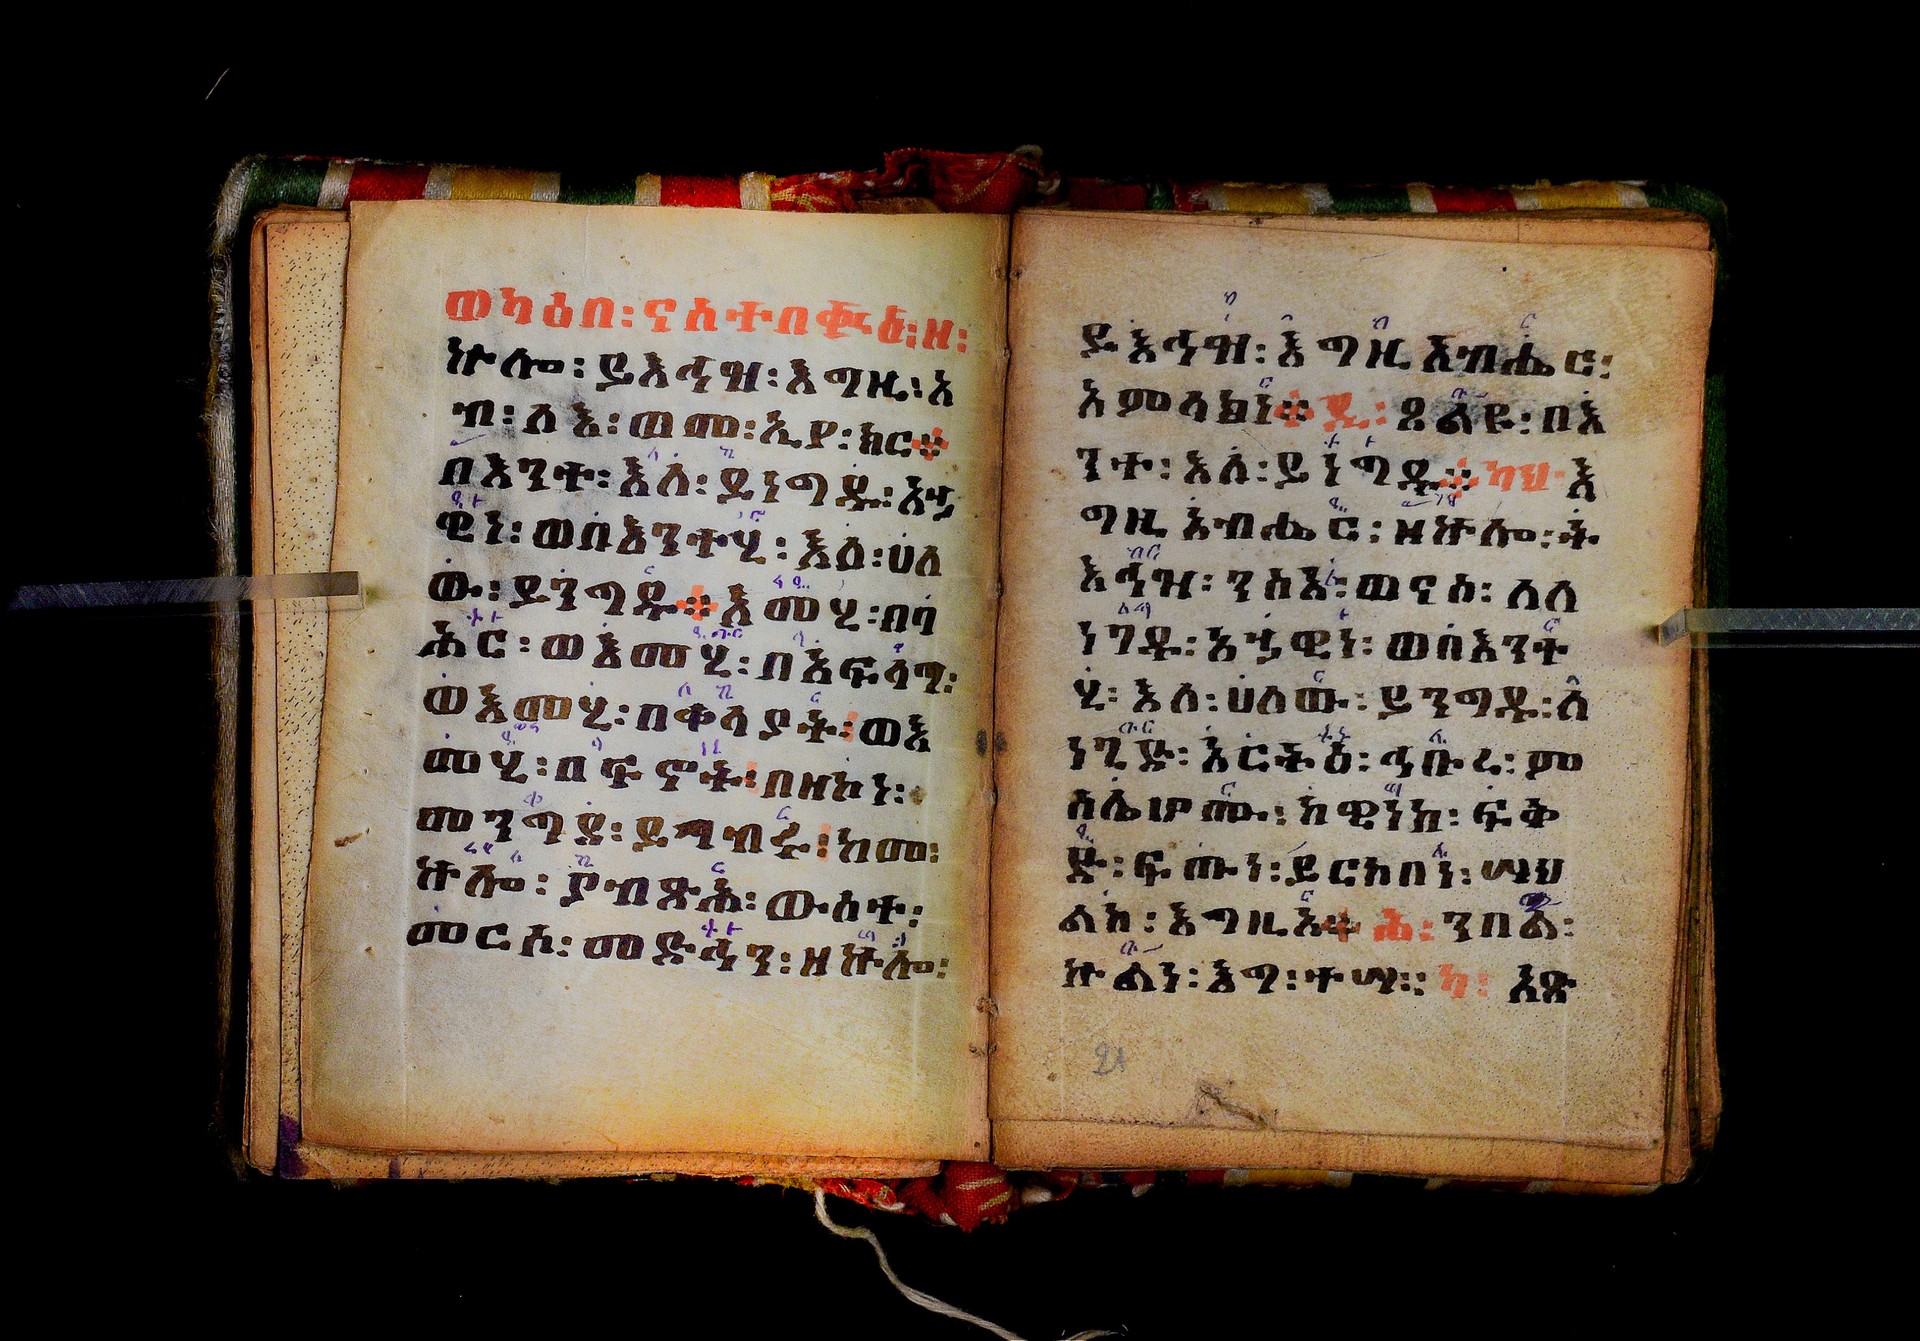 ወካዕበ፡ ናስተበቍዕ፡ ዘ፡
ኵሎ፡ ይእኅዝ፡ እግዚ፡ አ
ብ፡ ለእ፡ ወመ፡ ኢያ፡ ክር፨
በእንተ፡ እለ፡ ይነግዱ፡ አኃ
ዊነ፡ ወበእንተሂ፡ እለ፡ ሀለ
ው፡ ይንግዱ፨ እመሂ፡ በባ
ሕር፡ ወእመሂ፡ በአፍላግ፡
ወእመሂ፡ በቀላያት፡ ወእ
መሂ፡ በፍኖት፡ በዘኮነ፡
መንግደ፡ ይግብሩ፡ ከመ፡
ኵሎ፡ ያብጽሕ፡ ውስተ፡
መርሰ፡ መድኅን፡ ዘኵሎ፡
ይእኅዝ፡ እግዚአብሔር፡
አምላክነ፨ ዲ፡ ጸልዩ፡ በእ
ንተ፡ እለ፡ ይነግዱ፨ ካህ እ
ግዚአብሔር፡ ዘኵሎ፡ ት
እኅዝ፡ ንስእ፡ ወናስ፡ ለለ
ነገዱ፡ አኃዊነ፡ ወበእንተ
ሂ፡ እለ፡ ሀለው፡ ይንግዱ፡ ለ
ነጊድ፡ እርትዕ፡ ኅቡረ፡ ም
ስሌሆሙ፡ ከዊነከ፡ ፍቅ
ድ፡ ፍጡነ፡ ይርከበነ፡ ሣህ
ልከ፡ እግዚእ፨ ሕ፡ ንበል፡
ኵልነ፡ እግ፡ ተሣ፡ ካ፡ አጽ
21